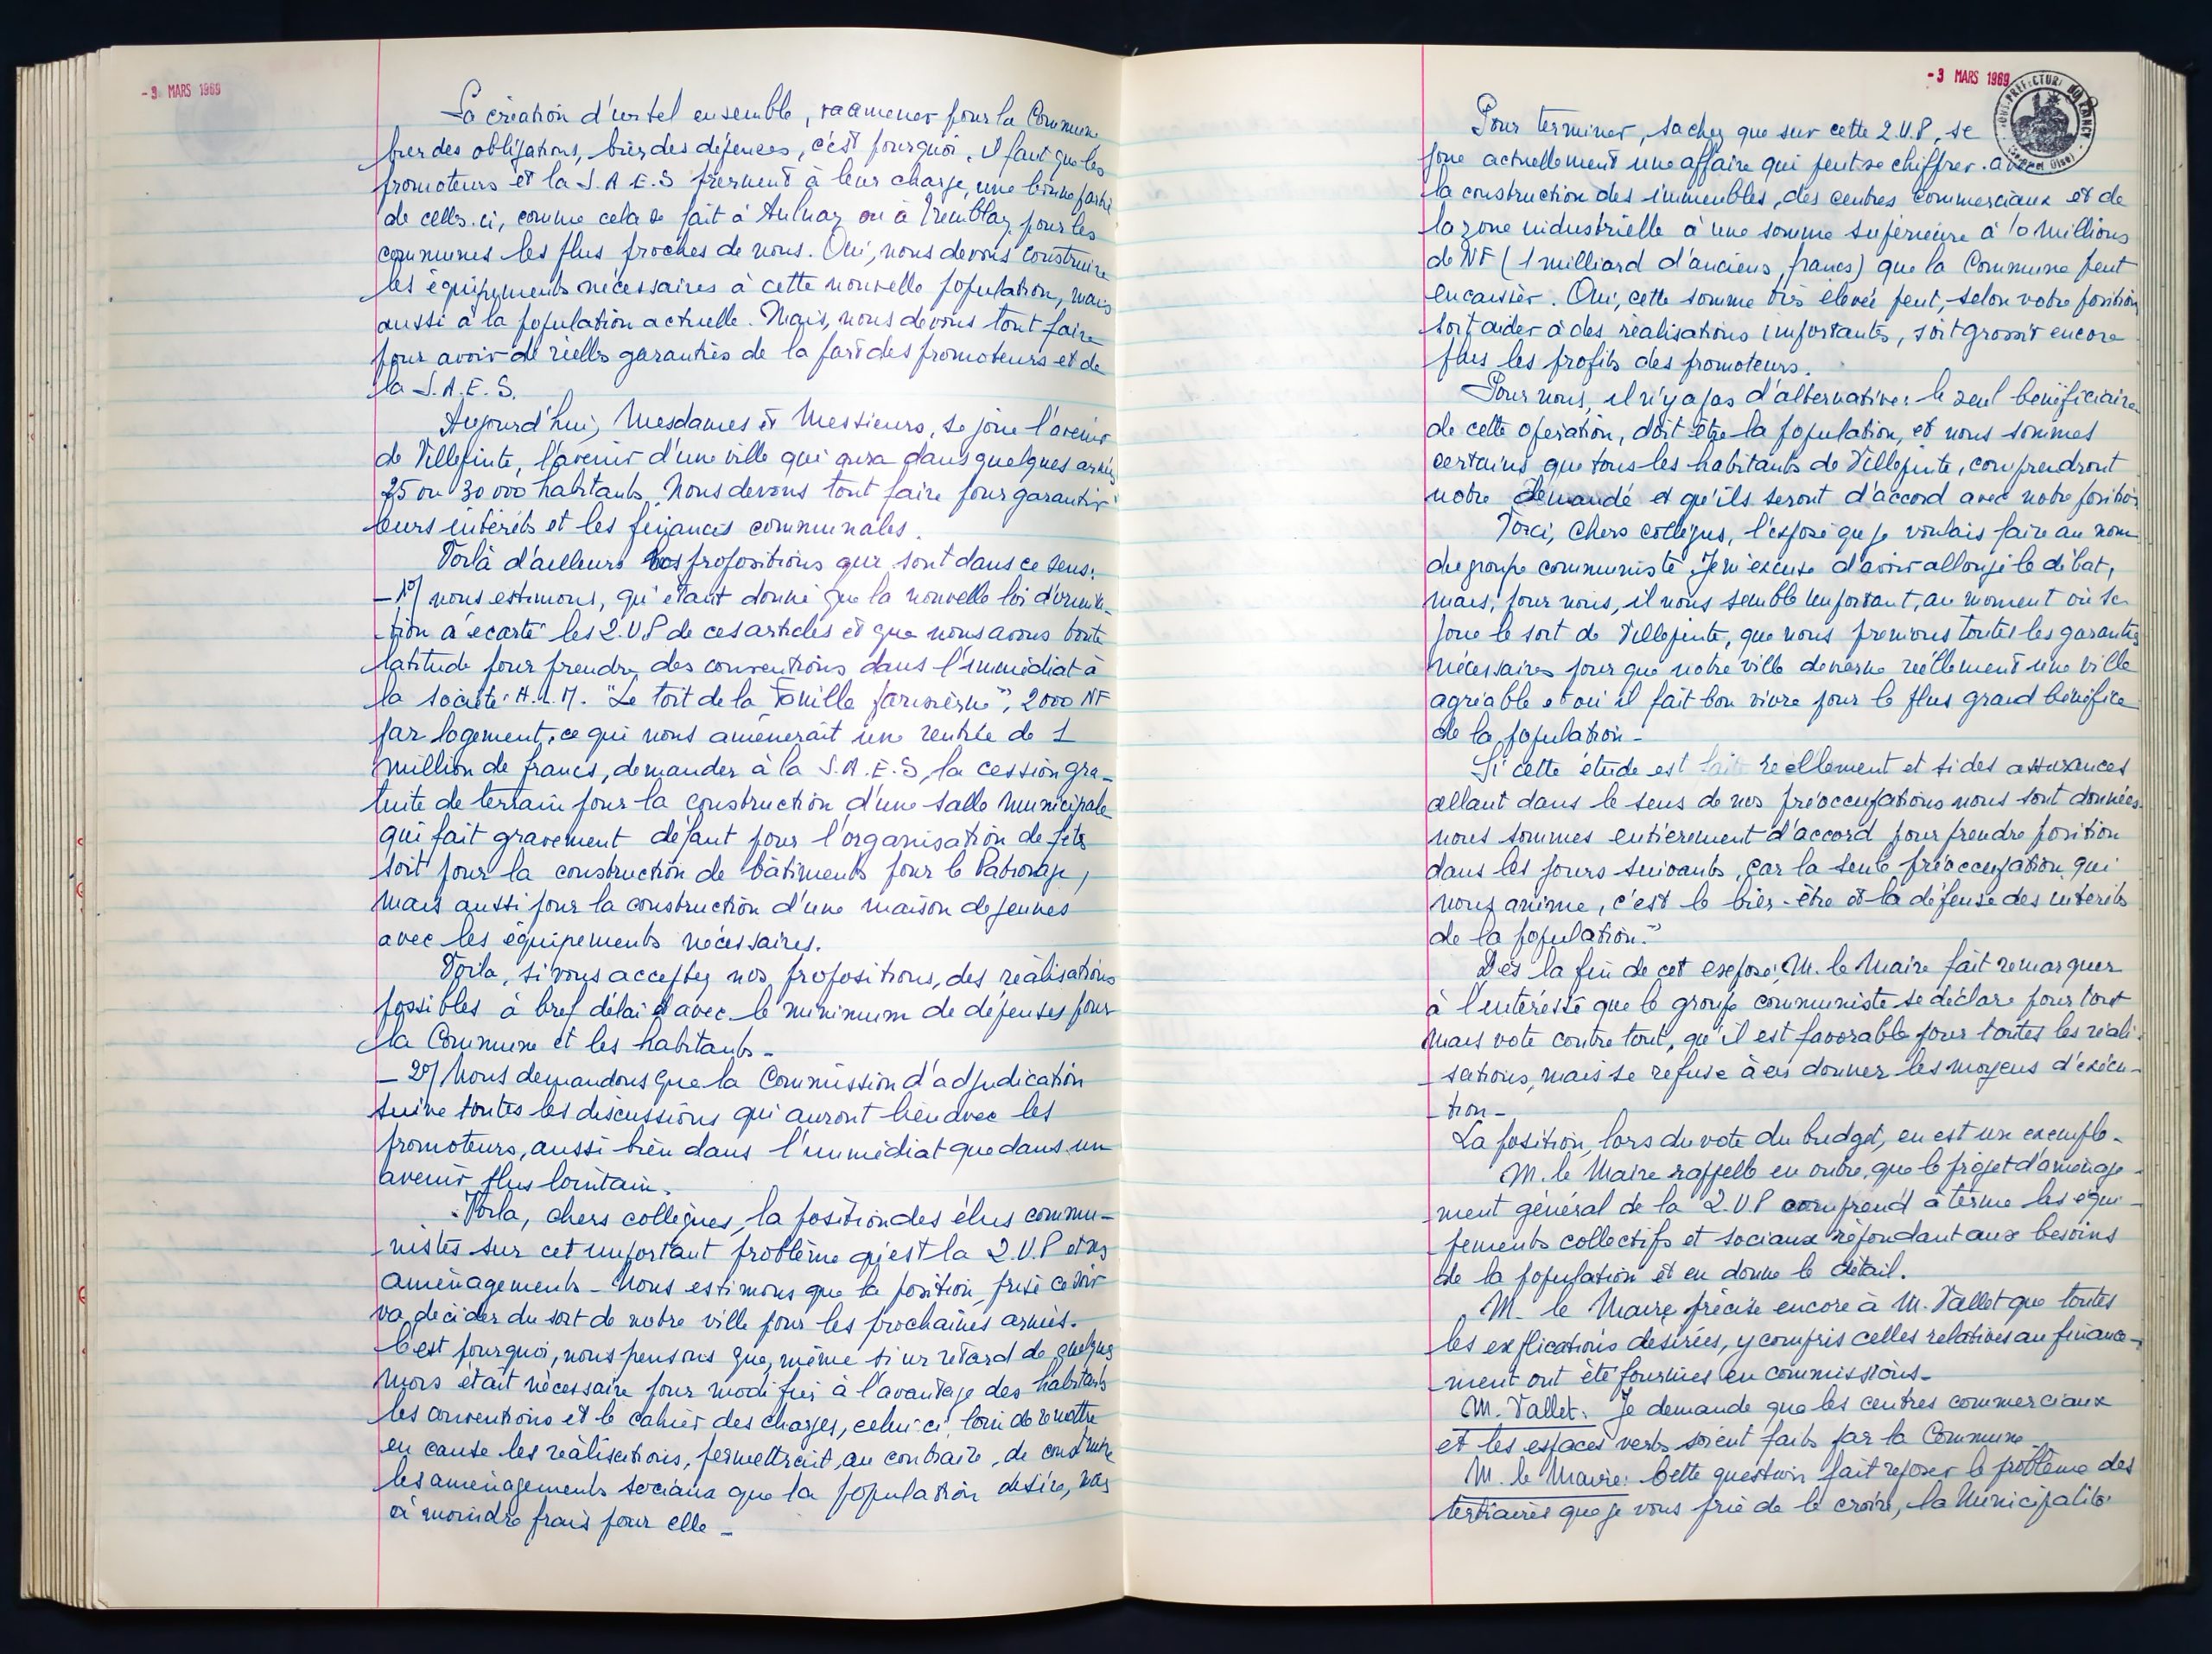 - 3 MARS 1969
La création d'un tel ensemble, va amener pour la Commune
bien des obligations, bien des dépenses, c'est pourquoi, il faut que les
promoteurs et la S.A.E.S prennent à leur charge, une bonne partie
de celles-ci, comme cela se fait à Aulnay ou à Tremblay, pour les
communes les plus proches de nous. Oui, nous devons construire
les équipements nécessaires à cette nouvelle population, mais
aussi à la population actuelle. Mais, nous devons tout faire
pour avoir de réelles garanties de la part des promoteurs et de
la S.A.E.S.
Aujourd'hui, Mesdames et Messieurs, se joue l'avenir
de Villepinte, l'avenir d'une ville qui aura dans quelques années
25 ou 30 000 habitants. Nous devons tout faire pour garantir
leurs intérêts et les finances communales.
Voilà d'ailleurs nos propositions qui sont dans ce sens:
- 1°/ nous estimons, qu'étant donné que la nouvelle loi d'orienta-
-tion a écarté les Z.U.P de ces articles et que nous avons toute
latitude pour prendre des conventions dans l'immédiat à
la société H.L.M. "Le toit de la Famille parisienne", 2000 NF
par logement, ce qui nous amènerait une rentrée de 1
million de francs, demander à la S.A.E.S, la cession gra-
tuite de terrain pour la construction d'une salle municipale
qui fait gravement défaut pour l'organisation de fêtes
soit pour la construction de bâtiments pour le Patronage,
mais aussi pour la construction d'une maison de jeunes
avec les équipements nécessaires.
Voila, si vous acceptez nos propositions, des réalisations
possibles à bref délai et avec le minimum de dépenses pour
la Commune et les habitants -
- 2°/ Nous demandons que la Commission d'adjudication
suive toutes les discussions qui auront lieu avec les
promoteurs, aussi bien dans l'immédiat que dans un
avenir plus lointain.
Voila, chers collègues, la position des élus commu-
-nistes sur cet important problème qu'est la Z.U.P et ses
aménagements - Nous estimons que la position prise ce soir
va décider du sort de notre ville pour les prochaines années.
C'est pourquoi, nous pensons que, même si un retard de quelques
mois était nécessaire pour modifier à l'avantage des habitants
les conventions et le cahier des charges, celui ci, loin de remettre
en cause les réalisations, permettrait, au contraire, de construire
les aménagements sociaux que la population désire, mais
à moindre frais pour elle -
- 3 MARS 1969
SOUS-PREFECTURE DU RAINCY
Pour terminer, sachez que sur cette Z.U.P, se
joue actuellement une affaire qui peut se chiffrer avec
la construction des immeubles, des centres commerciaux et de
la zone industrielle à une somme supérieure à 10 millions
de NF (1 milliard d'anciens francs) que la Commune peut
encaisser. Oui, cette somme très élevée peut, selon votre position
soit aider à des réalisations importantes, soit grossir encore
plus les profits des promoteurs.
Pour nous, il n'y a pas d'alternative: le seul bénéficiaire
de cette opération, doit être la population, et nous sommes
certains que tous les habitants de Villepinte, comprendront
notre demande et qu'ils seront d'accord avec notre position.
Voici, Chers collègues, l'exposé que je voulais faire au nom
du groupe communiste. Je m'excuse d'avoir allongé le débat,
mais, pour nous, il nous semble important, au moment où se
joue le sort de Villepinte, que nous prenions toutes les garanties
nécessaires pour que notre ville devienne réellement une ville
agréable et où il fait bon vivre pour le plus grand bénéfice
de la population -
Si cette étude est fait réellement et si des assurances
allant dans le sens de nos préoccupations nous sont données
nous sommes entièrement d'accord pour prendre position
dans les jours suivants, car la seule préoccupation qui
nous anime, c'est le bien-être et la défense des intérêts
de la population."
Dès la fin de cet exposé, M. le Maire fait remarquer
à l'intéressé que le groupe communiste se déclare pour tout
mais vote contre tout, qu'il est favorable pour toutes les réali-
-sations, mais se refuse à en donner les moyens d'exécu-
-tion -
La position, lors du vote du budget, en est un exemple -
M. le Maire rappelle en outre, que le projet d'aménage-
-ment général de la Z.U.P comprend à terme les équi-
-pements collectifs et sociaux répondant aux besoins
de la population et en donne le détail.
M. le Maire précise encore à M. Vallet que toutes
les explications désirées, y compris celles relatives au finance-
-ment ont été fournies en commissions -
M. Vallet: Je demande que les centres commerciaux
et les espaces verts soient faits par la Commune -
M. le Maire: Cette question fait reposer le problème des
tertiaires que je vous prie de le croire, la Municipalité